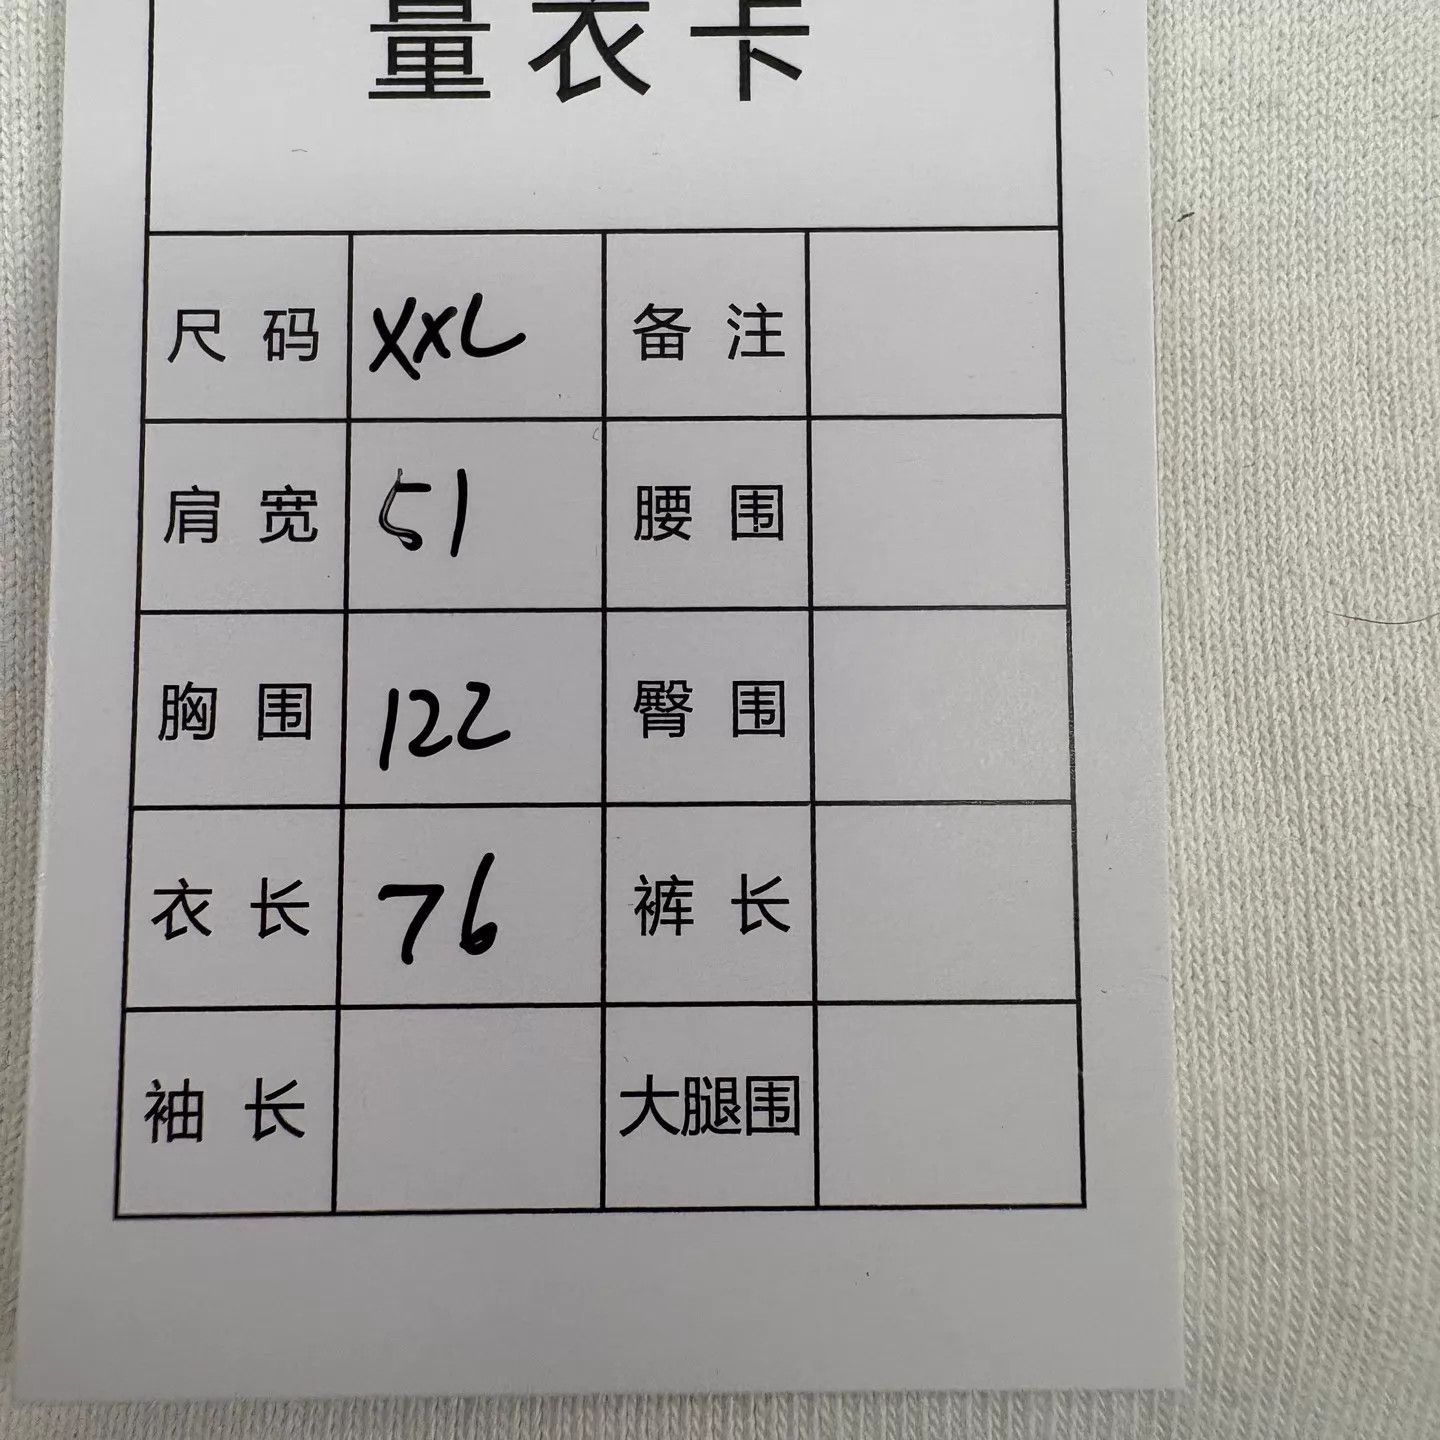 量衣卡
尺码 XXL 备注
肩宽 51 腰围
胸围 122 臀围
衣长 76 裤长
袖长 大腿围